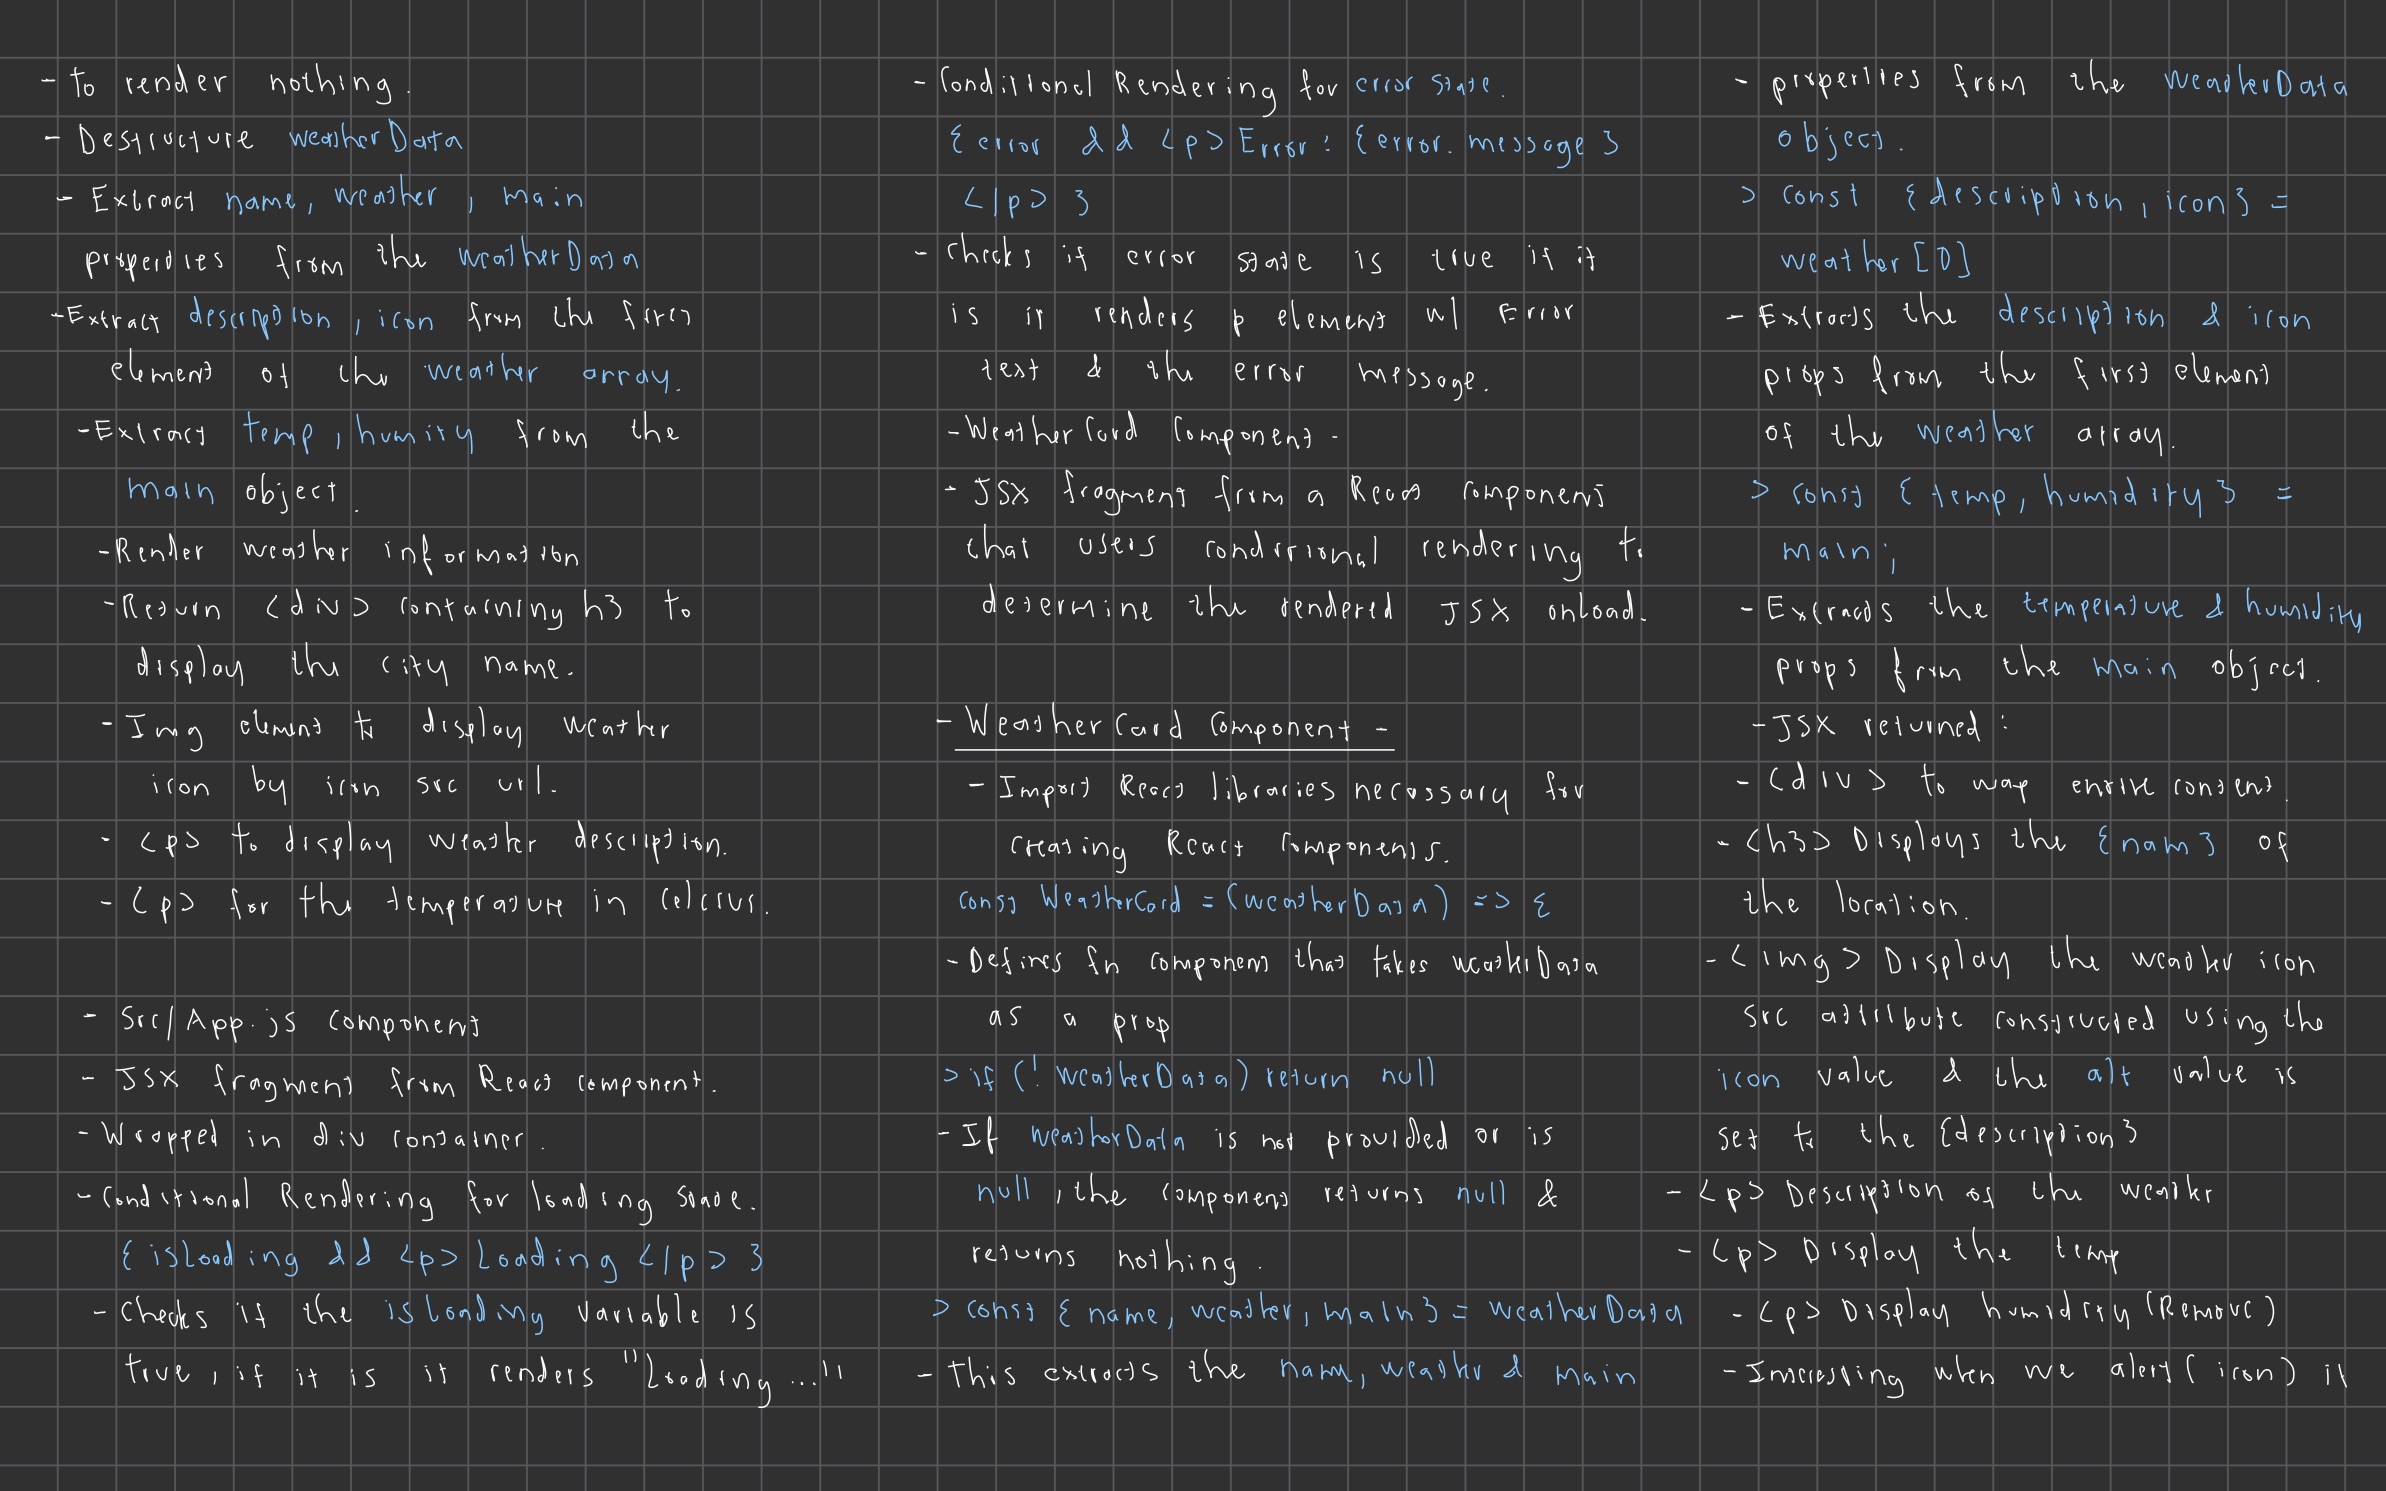 - To render nothing.
- Destructure weatherData
- Extract name, weather, main
properties from the weatherData
- Extract description, icon from the first
element of the weather array.
- Extract temp, humity from the
main object.
- Render weather information
- Return <div> containing h3 to
display the city name.
- Img element to display weather
icon by icon src url.
- <p> to display weather description.
- <p> for the temperature in Celcius.
- Src/App.js component
- JSX fragment from React component.
- Wrapped in div container.
- Conditional Rendering for loading state.
{isLoading && <p> Loading </p> }
- Checks if the isLoading variable is
true, if it is it renders "Loading..."
- Conditional Rendering for error state.
{error && <p> Error: {error.message}
</p> }
- Checks if error state is true if it
is it renders p element w/ Error
text & the error message.
- WeatherCard Component -
- JSX fragment from a React component
that users conditional rendering to
determine the rendered JSX onload.
- WeatherCard Component -
- Import React libraries necessary for
creating React Components.
const WeatherCard = (weatherData) => {
- Defines fn component that takes weatherData
as a prop
> if (! weatherData) return null
- If weatherData is not provided or is
null, the component returns null &
returns nothing.
> const { name, weather, main} = weatherData
- This extracts the name, weather & main
- properties from the weatherData
object.
> const {description, icon} =
weather[0]
- Extracts the description & icon
props from the first element
of the weather array.
> const { temp, humidity } =
main;
- Extracts the temperature & humidity
props from the main object.
- JSX returned:
- <div> to wap entire content.
- <h3> Displays the {nam} of
the location.
- <img> Display the weather icon
src attribute constructed using the
icon value & the alt value is
set to the {description}
- <p> Description of the weather
- <p> Display the temp
- <p> Display humidity (Remove)
- Interesting when we alert( icon) it